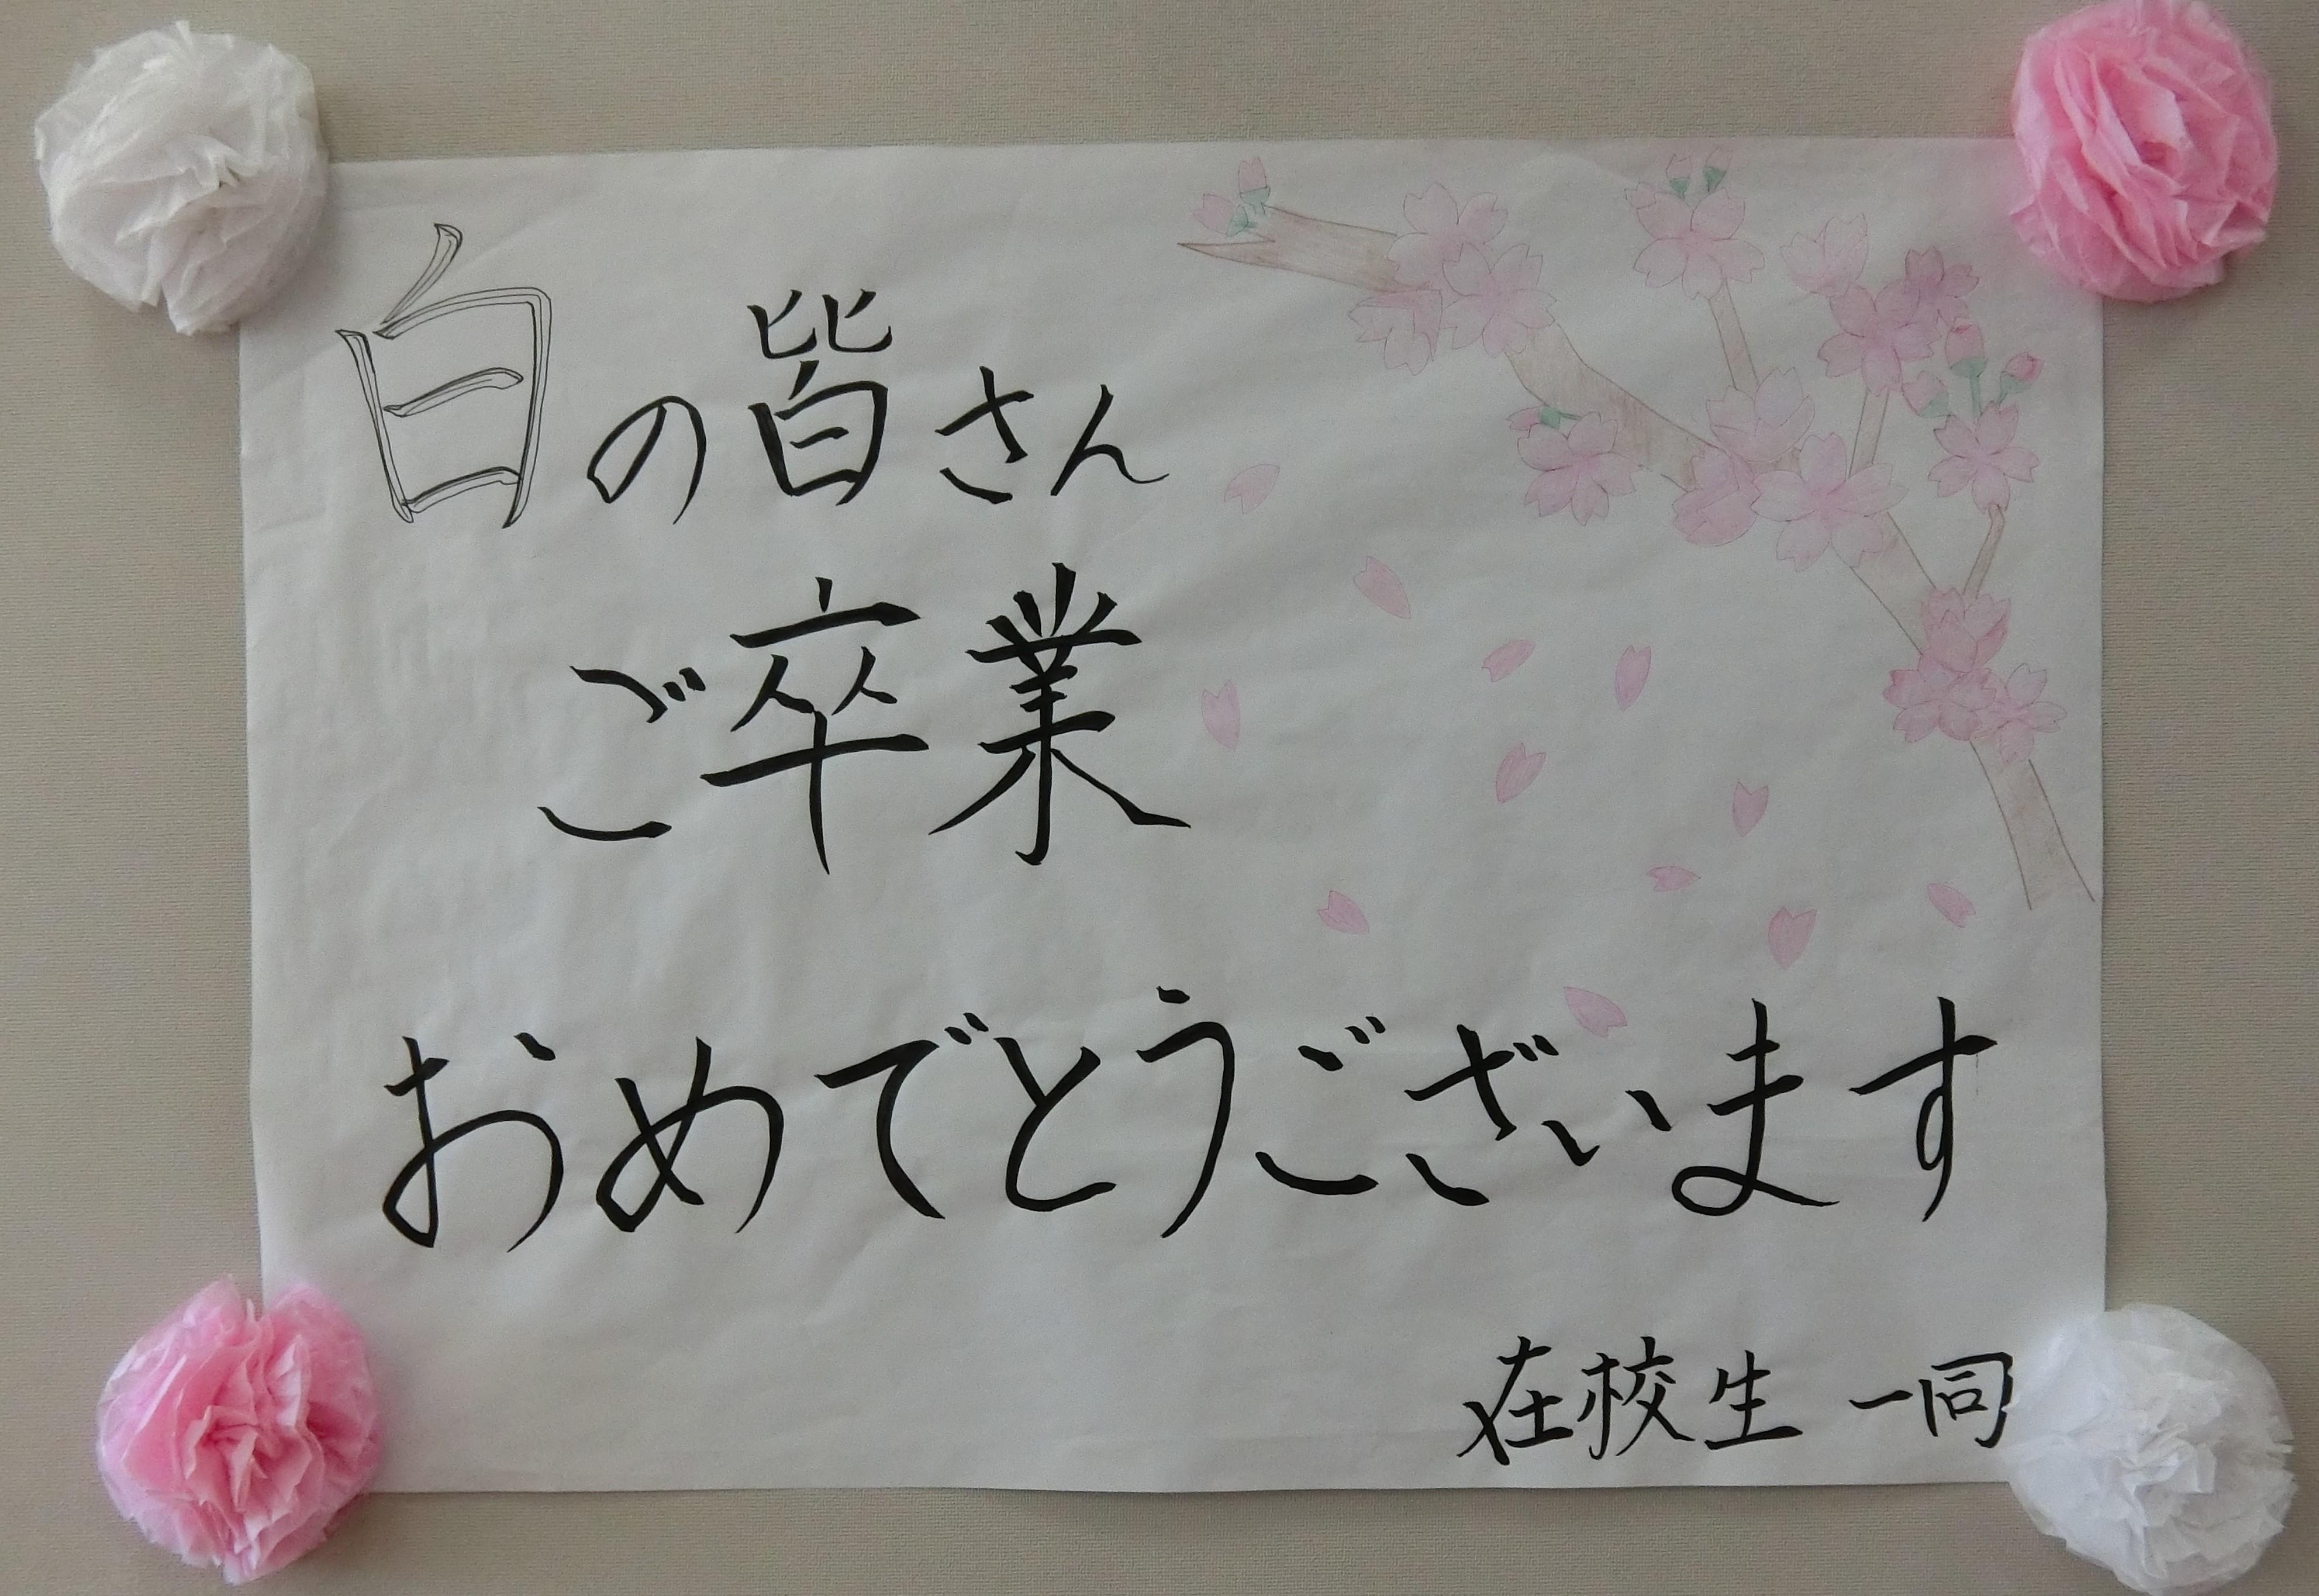 白の皆さん
ご卒業
おめでとうございます
在校生 一同